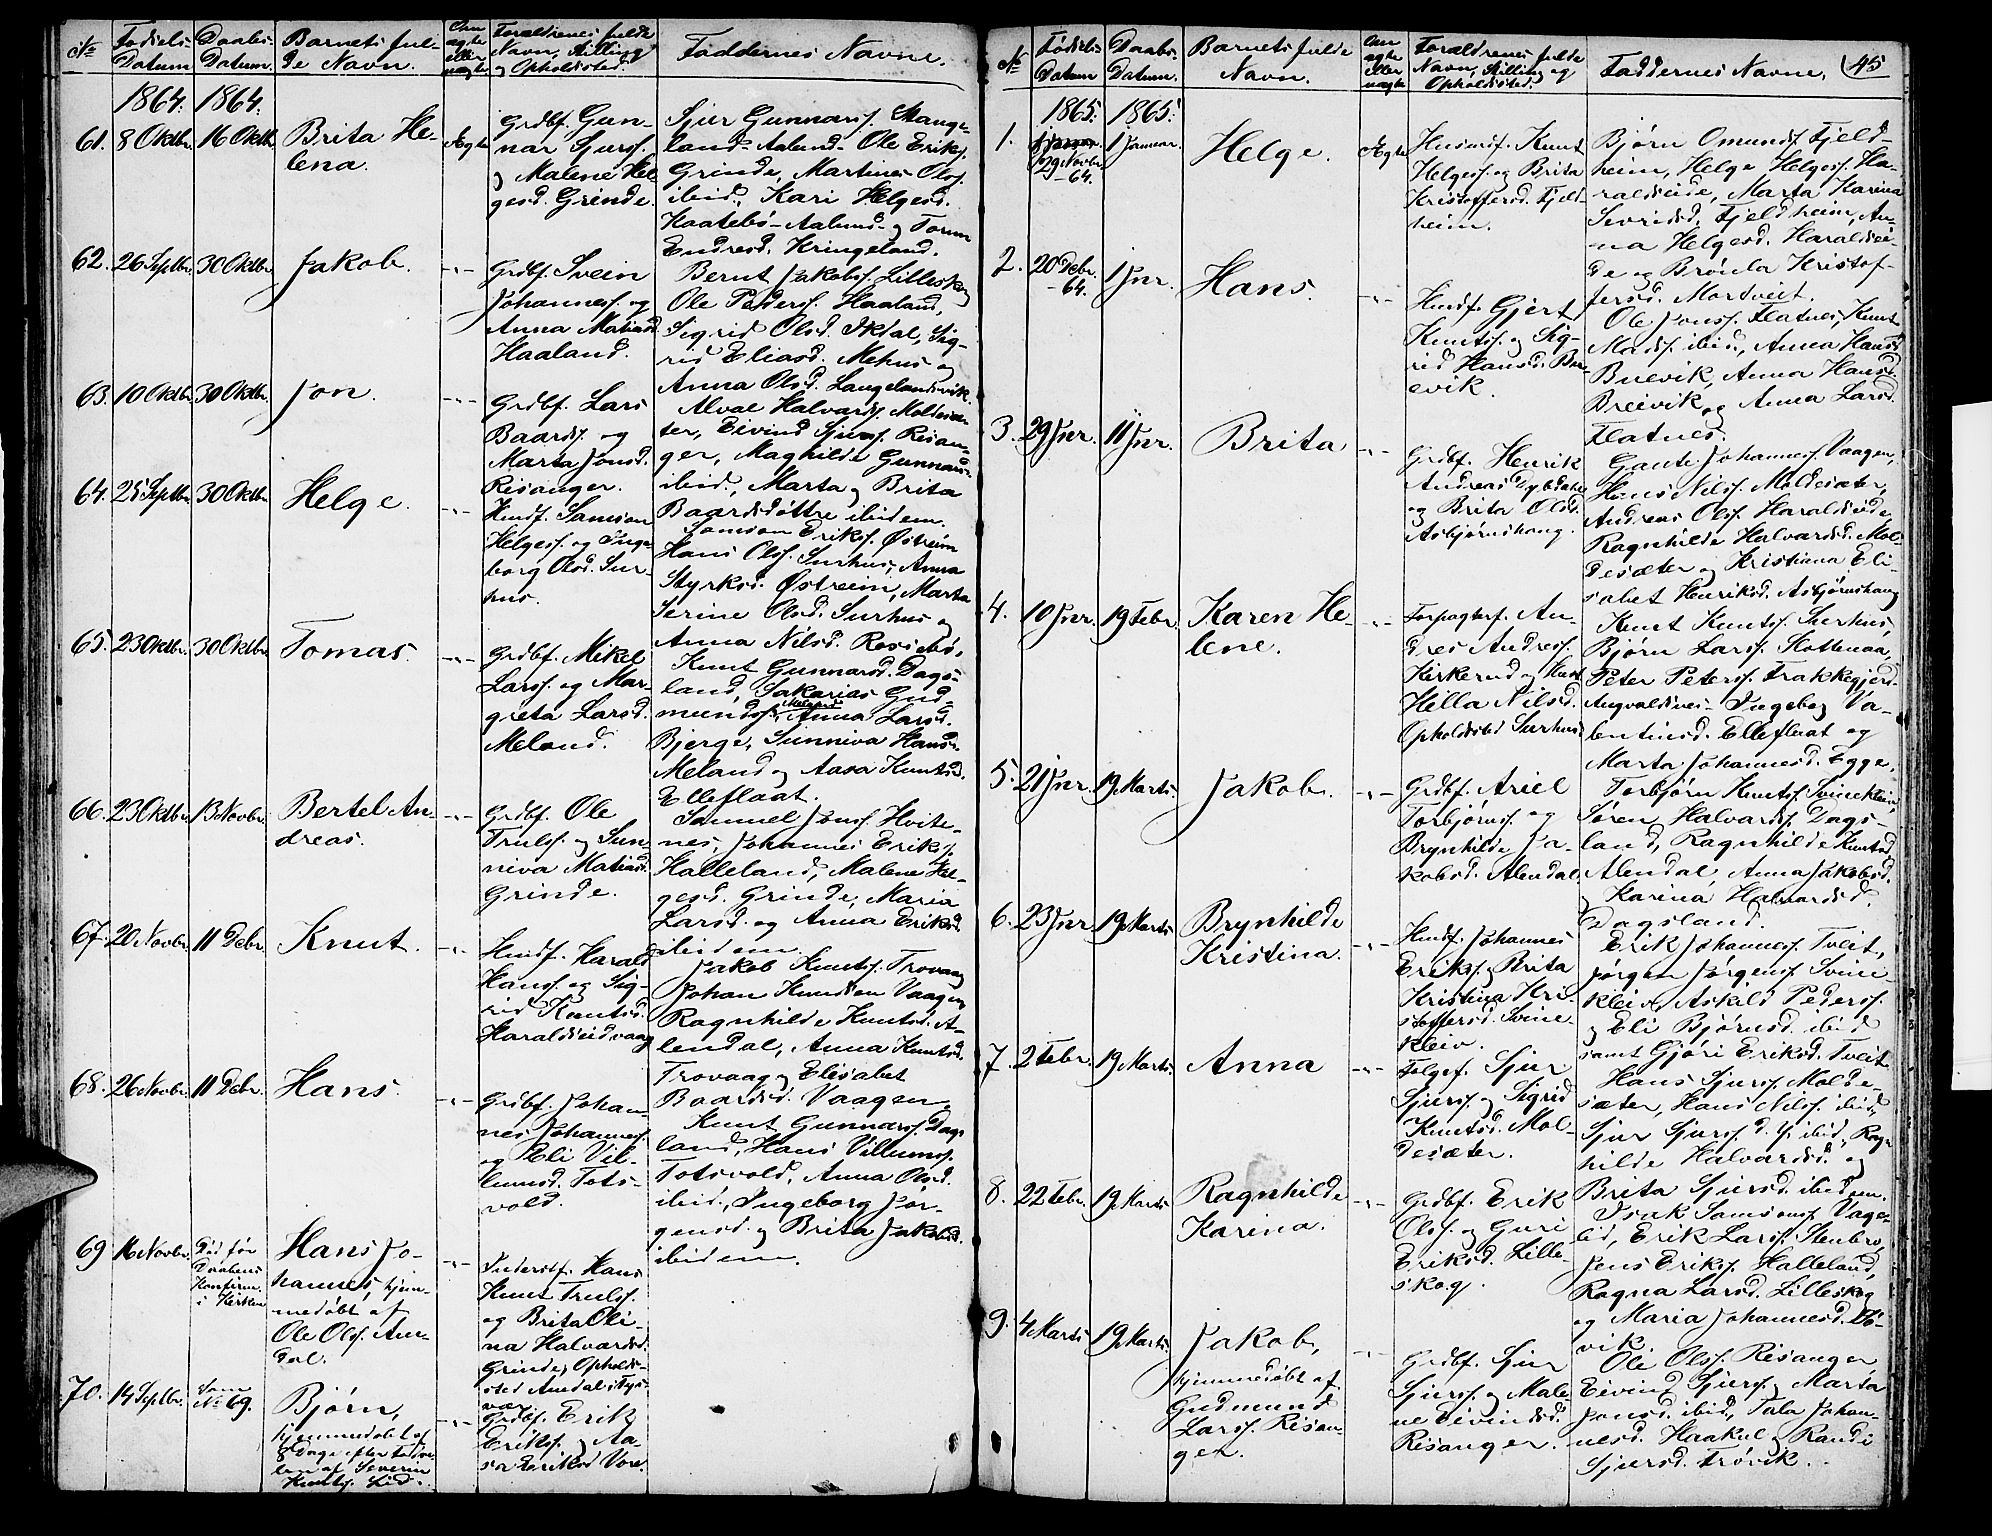 No
Fødsels-
Datum
Daabs-
Datum.
Barnets ful-
de Navn.
Om
ægte
eller
uægte
Forældrenes fulde
Navn, Stilling
og Opholdssted.
Faddernes Navne.
1864. 1864.
61. 8 Oktbr. 16 Oktbr.
Brita He-
lena.
Ægte
Grdbf. Gun-
nar Sjurs.
og Malene Hel-
gesd. Grinde.
Sjur Gunnars. Stange-
land-Aalund- Ole Eriks.
Grinde, Martines Ols.
ibid., Kari Helgesd.
Kaatebø-Aalund- og Torun
Endresd. Kringeland.
62. 26 Septbr. 30 Oktbr.
Jakob.
-"-
Grdbf. Svein
Johannes. og
Anna Matiasd.
Haaland.
Bernt Jakobs. Lilleskog
Ole Peders. Haaland,
Sigrid Olsd. Økdal, Sig-
rid Eliasd. Mehus og
Anna Olsd. Langelandsvik.
63. 10 Oktbr. 30 Oktbr.
Jon.
-"-
Grdbf. Lars
Baards. og
Marta Jonsd.
Risanger.
Alval Halvards. Moldesæ-
ter, Eivind Sjurs. Risan-
ger, Maghilde Gunnarsd.
ibid., Marta og Brita
Baardsdøttre ibidem.
64. 25 Septbr. 30 Oktbr.
Helge.
-"-
Husdf. Samson
Helges. og Inge-
borg Olsd. Sur-
hus.
Samson Eriks. Østreim
Hans Ols. Surhus, Anna
Styrksd. Østreim, Marta
Serine Olsd. Surhus og
Anna Nilsd. Rossebø.
65. 23 Oktbr. 30 Oktbr.
Tomas.
-"-
Grdbf. Mikel
Lars. og Mar-
greta Larsd.
Meland.
Knut Gunnarsd. Dags-
land, Sakarias Gud-
munds. Meland, Anna Larsd.
Bjerge, Sunniva Hansd.
Meland og Aasa Knutsd.
Elleflaat.
66. 23 Oktbr. 13 Novbr.
Bertel An-
dreas.
-"-
Grdbf. Ole
Truls. og Sun-
niva Matiasd.
Grinde.
Samuel Jons. Hvite-
nes, Johannes Eriks.
Halleland, Malene Hel-
gesd. Grinde, Maria
Larsd. og Anna Eriksd.
ibidem.
67. 20 Novbr. 11 Debr.
Knut.
-"-
Husdf. Harald
Hans. og Sig-
rid Knutsd.
Haraldseidvaag
Jakob Knuts. Trovaag
Johan Knudsen Vaagen
Ragnhilde Knutsd. A-
lendal, Anna Knutsd.
Trovaag og Elisabet
Baardsd. Vaagen.
68. 26 Novbr. 11 Debr.
Hans.
-"-
Grdbf. Johan-
nes Johannes.
og Eli Vil-
lumsd. Tots-
vold.
Knut Gunnars. Dags-
land, Hans Villums.
Totsvold, Anna Olsd.
ibid., Ingeborg Jør-
gensd. og Brita Jakobsd.
ibidem.
69 16 Novbr.
Død før
Daabens
Konfirm.
i Kirken
Hans Jo-
hannes, hjem-
medøbt af
Ole Ols. Am-
dal.
-"-
Inderstf. Hans
Knut Truls.
og Brita Oli-
na Halvardsd.
Grinde, Opholds-
sted Amdal i Tys-
vær
70. 14 Septbr.
Som
No 69.
Bjørn,
hjemmedøbt af
8 Dage efter Fødse-
len af Severin
Knuts. Lid.
-"-
Grdbf. Erik
Eriks. og Aa-
sa Eriksd. Vore.
No
Fødsels-
Datum
Daabs-
Datum.
Barnets fulde
Navn.
Om
ægte
eller
uægte
Forældrenes fulde
Navn, Stilling og
Opholdssted.
Faddernes Navne.
45
1865. 1865.
1.
29 Novbr.
-64.
1 Januar.
Helge.
Ægte
Husmdf. Knut
Helges. og Brita
Kristoffersd. Fjeld-
heim.
Bjørn Omunds. Fjeld-
heim, Helge Helges. Ha-
raldseide, Marta Karina
Sevrinsd. Fjeldheim, An-
na Helgesd. Haraldsei-
de og Brønla Kristof-
fersd. Mortveit.
2. 20 Debr.
-64.
1 Jnr.
Hans.
-"-
Husdf. Gjert
Knuts. og Sig-
rid Hansd. Bre-
evik.
Ole Jons. Flatnes, Knut
Mons. ibid., Anna Hansd.
Breevik, Anna Hansd.
Breivik og Anna Larsd.
Flatnes.
3. 29 Jnr. 11 Jnr.
Brita
-"-
Grdbf. Henrik
Andreas Dybdahl
og Brita Olsd.
Asbjørnshaug.
Gaute Johannes. Vaagen,
Hans Nils. Moldesæter,
Andreas Ols. Haraldseide
Ragnhilde Halvardsd. Mol-
desæter og Kristiana Eli-
sabet Henriksd. Asbjørnshaug
4. 10 Jnr. 19 Febr.
Karen He-
lene.
-"-
Forpagterf. An-
dres Andres.
Kirkerud og Hust.
Hella Nilsd.
Opholdssted Surhus
Knut Knuts. Surhus,
Bjørn Lars. Kottenaa,
Peter Peters. Frakkegjerd
Augvaldsnes- Ingeborg Va-
lentinsd. Elleflaat og
Marta Johannesd. Egge.
5. 21 Jnr. 19 Marts.
Jakob.
-"-
Grdbf. Ariel
Torbjørns. og
Brynhilde Ja-
kobsd. Alendal.
Torbjørn Knuts. Svinekleiv,
Søren Halvards. Dags-
land, Ragnhilde Knutsd.
Alendal, Anna Jakobsd.
og Karina Halvardsd.
Dagsland.
6. 23 Jnr. 19 Marts
Brynhilde
Kristina.
-"-
Husdf. Johannes
Eriks. og Brita
Kristina Kri-
stoffersd. Svine-
kleiv.
Erik Johannes. Tveit,
Jørgen Jørgens. Svine-
kleiv, Askild Peders.
og Eli Bjørnsd. ibid
samt Gjøri Eriksd. Tveit.
7. 2 Febr. 19 Marts.
Anna
-"-
Følgef. Sjur
Sjurs. og Sigrid
Knutsd. Mol-
desæter.
Hans Sjurs. Molde-
sæter, Hans Nils. ibid.,
Sjur Sjurs. d. y. ibid., Ragn-
hilde Halvardsd. og
Brita Sjursd. ibidem.
8. 22 Febr. 19 Marts.
Ragnhilde
Karina.
-"-
Grdbf. Erik
Ols. og Guri
Eriksd. Lille-
skog.
Isak Samsons. Vage-
lid, Erik Lars. Stenbro,
Jens Eriks. Halleland,
Ragna Larsd. Lilleskog
og Maria Johannesd. Bø-
vik.
9. 4 Marts 19 Marts.
Jakob,
hjemmedøbt af
Gudmund
Lars. Risan-
ger.
-"-
Grdbf. Sjur
Sjurs. og Male-
ne Eivindsd.
Risanger.
Ole Ols. Risanger
Eivind Sjurs. og Marta
Jonsd. ibid., Tala Johan-
nesd. Haakul og Randi
Sjursd. Frøvik.